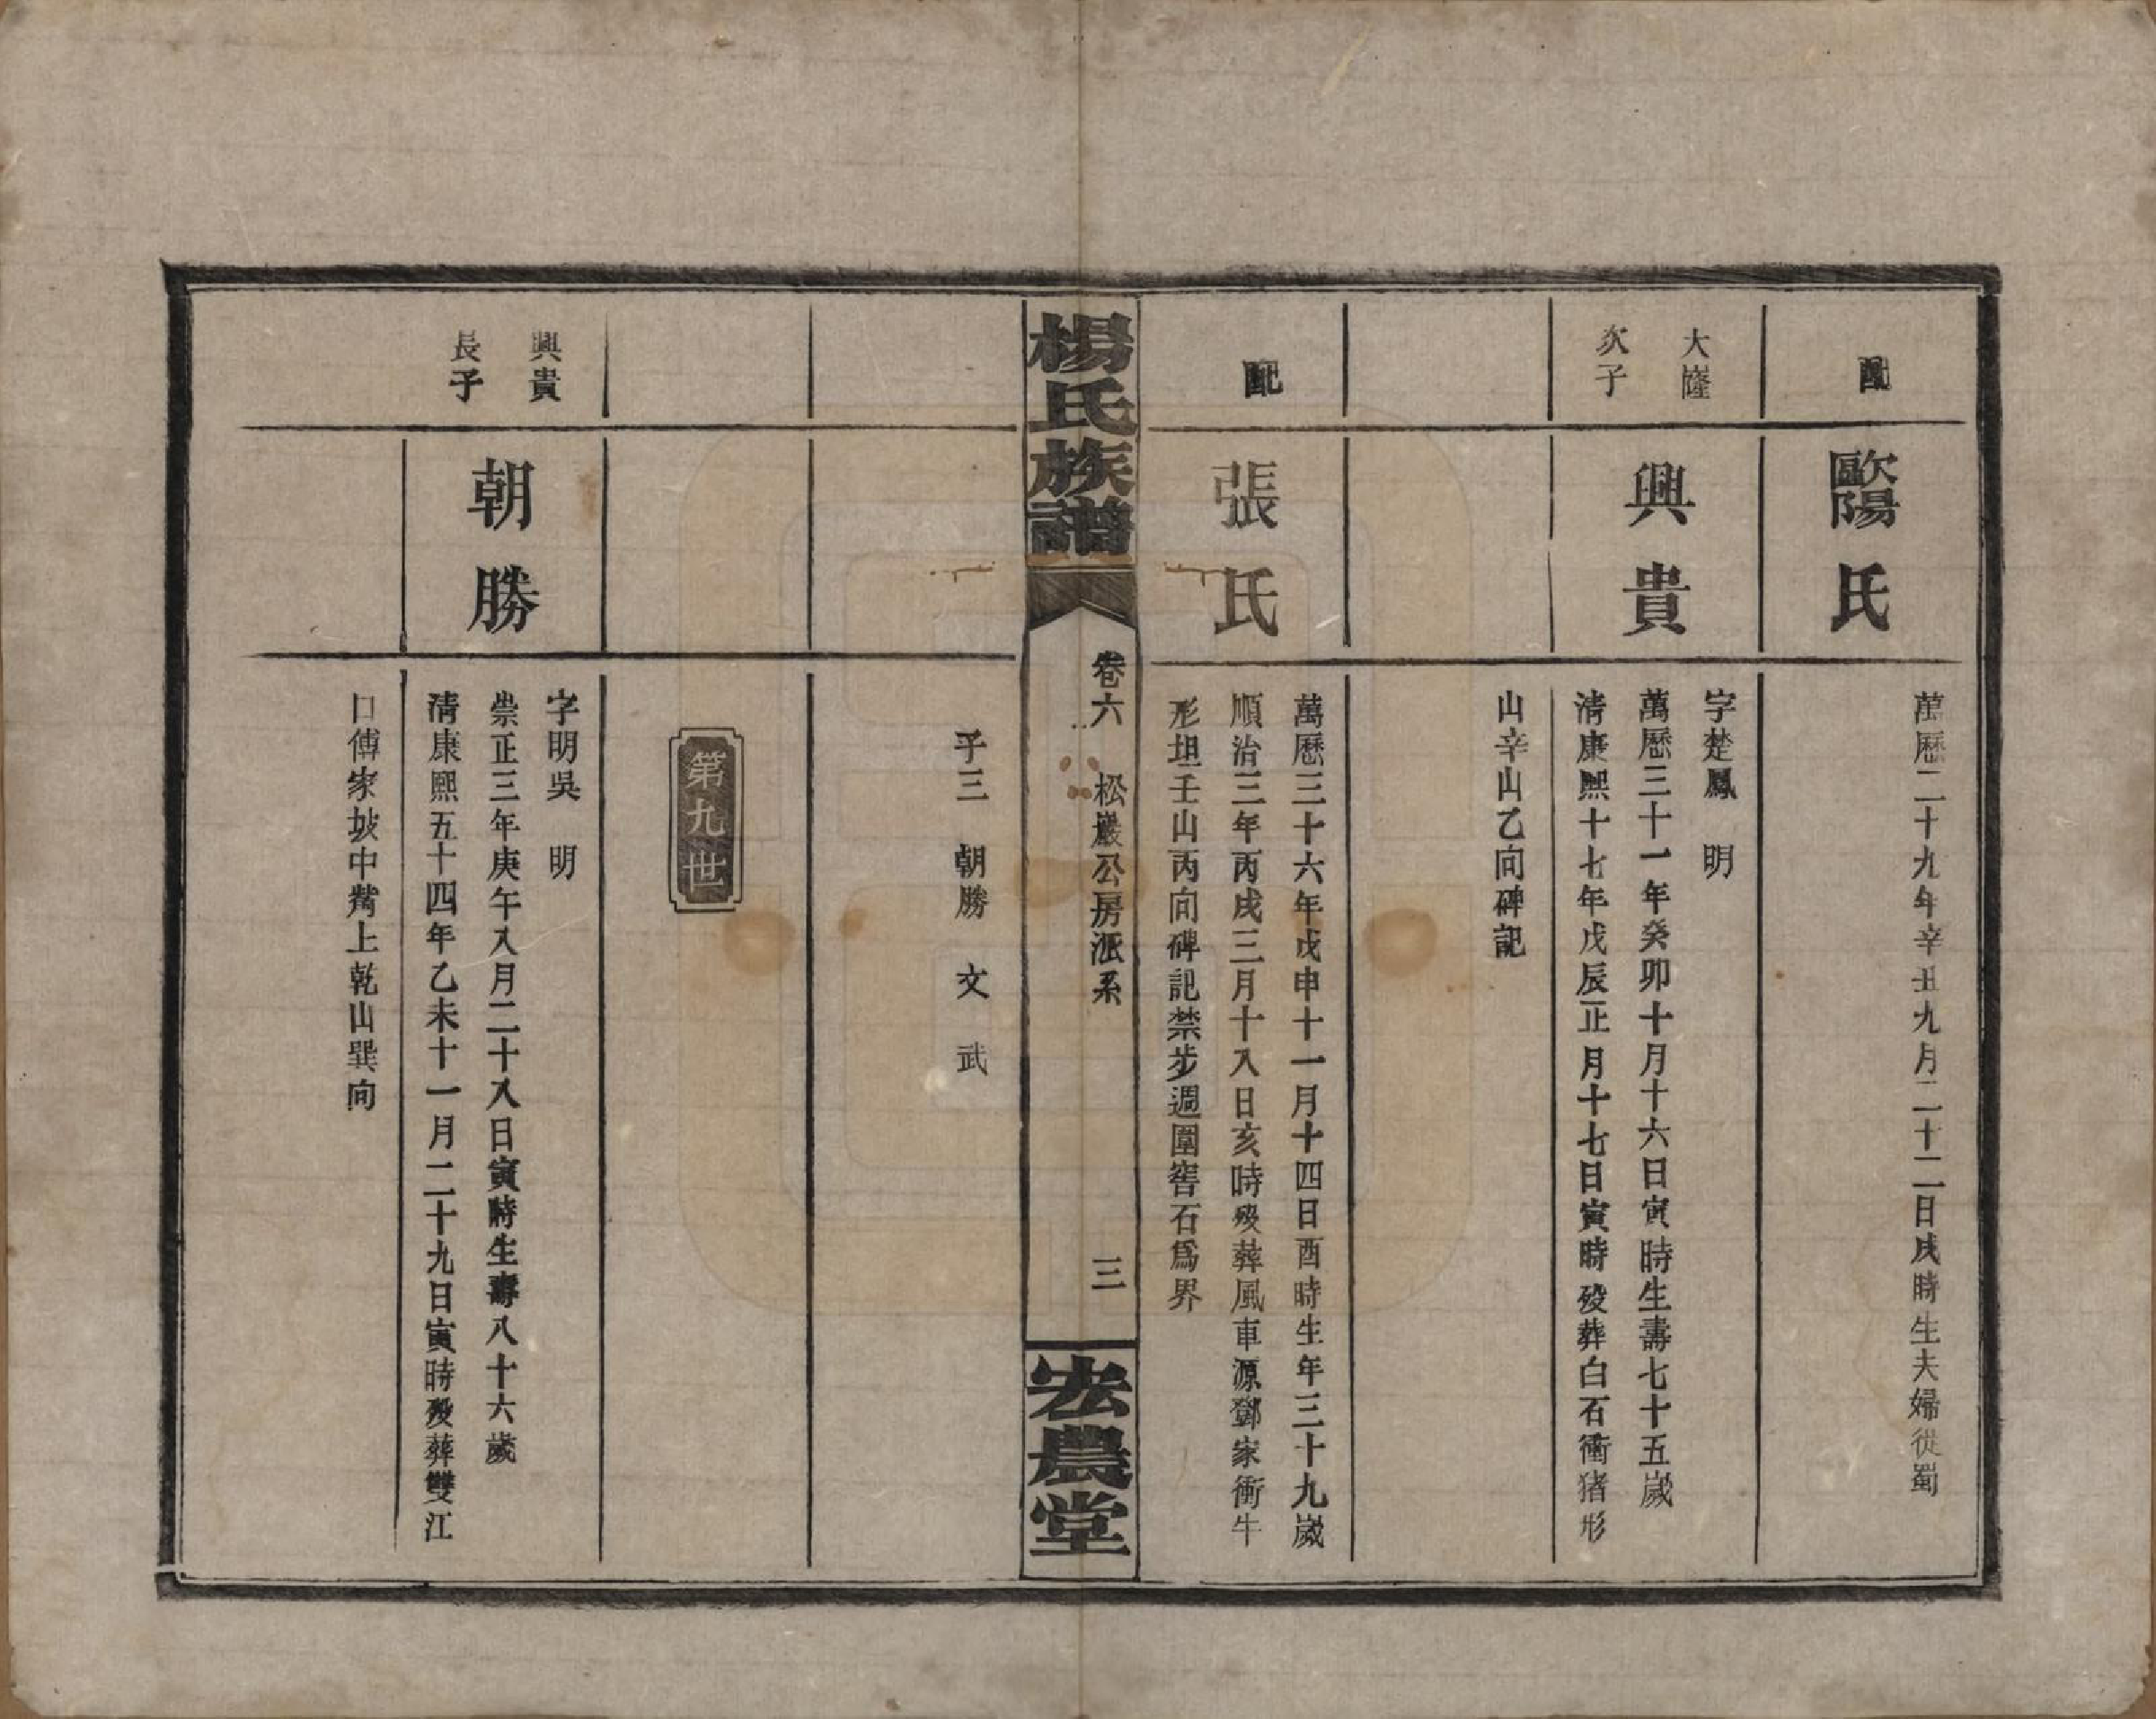 配
歐陽氏
萬歷二十九年辛丑九月二十二日戌時生夫婦從蜀
大窿
次子
興貴
字楚鳳 明
萬歷三十一年癸卯十月十六日寅時生壽七十五歲
清康熙十七年戊辰正月十七日寅時歿葬白石衝猪形
山辛山乙向碑記
配
張氏
萬歷三十六年戊申十一月十四日酉時生年三十九歲
順治三年丙戌三月十八日亥時歿葬風車源鄧家衝牛
形坦壬山丙向碑記禁步週圍窖石爲界
楊氏族譜
卷六 松巖公房派系
三
宏農堂
子三 朝勝 文 武
第九世
興貴
長子
朝勝
字明吳 明
崇正三年庚午八月二十八日寅時生壽八十六歲
清康熙五十四年乙未十一月二十九日寅時歿葬雙江
口傅家坡中嵩上乾山巽向